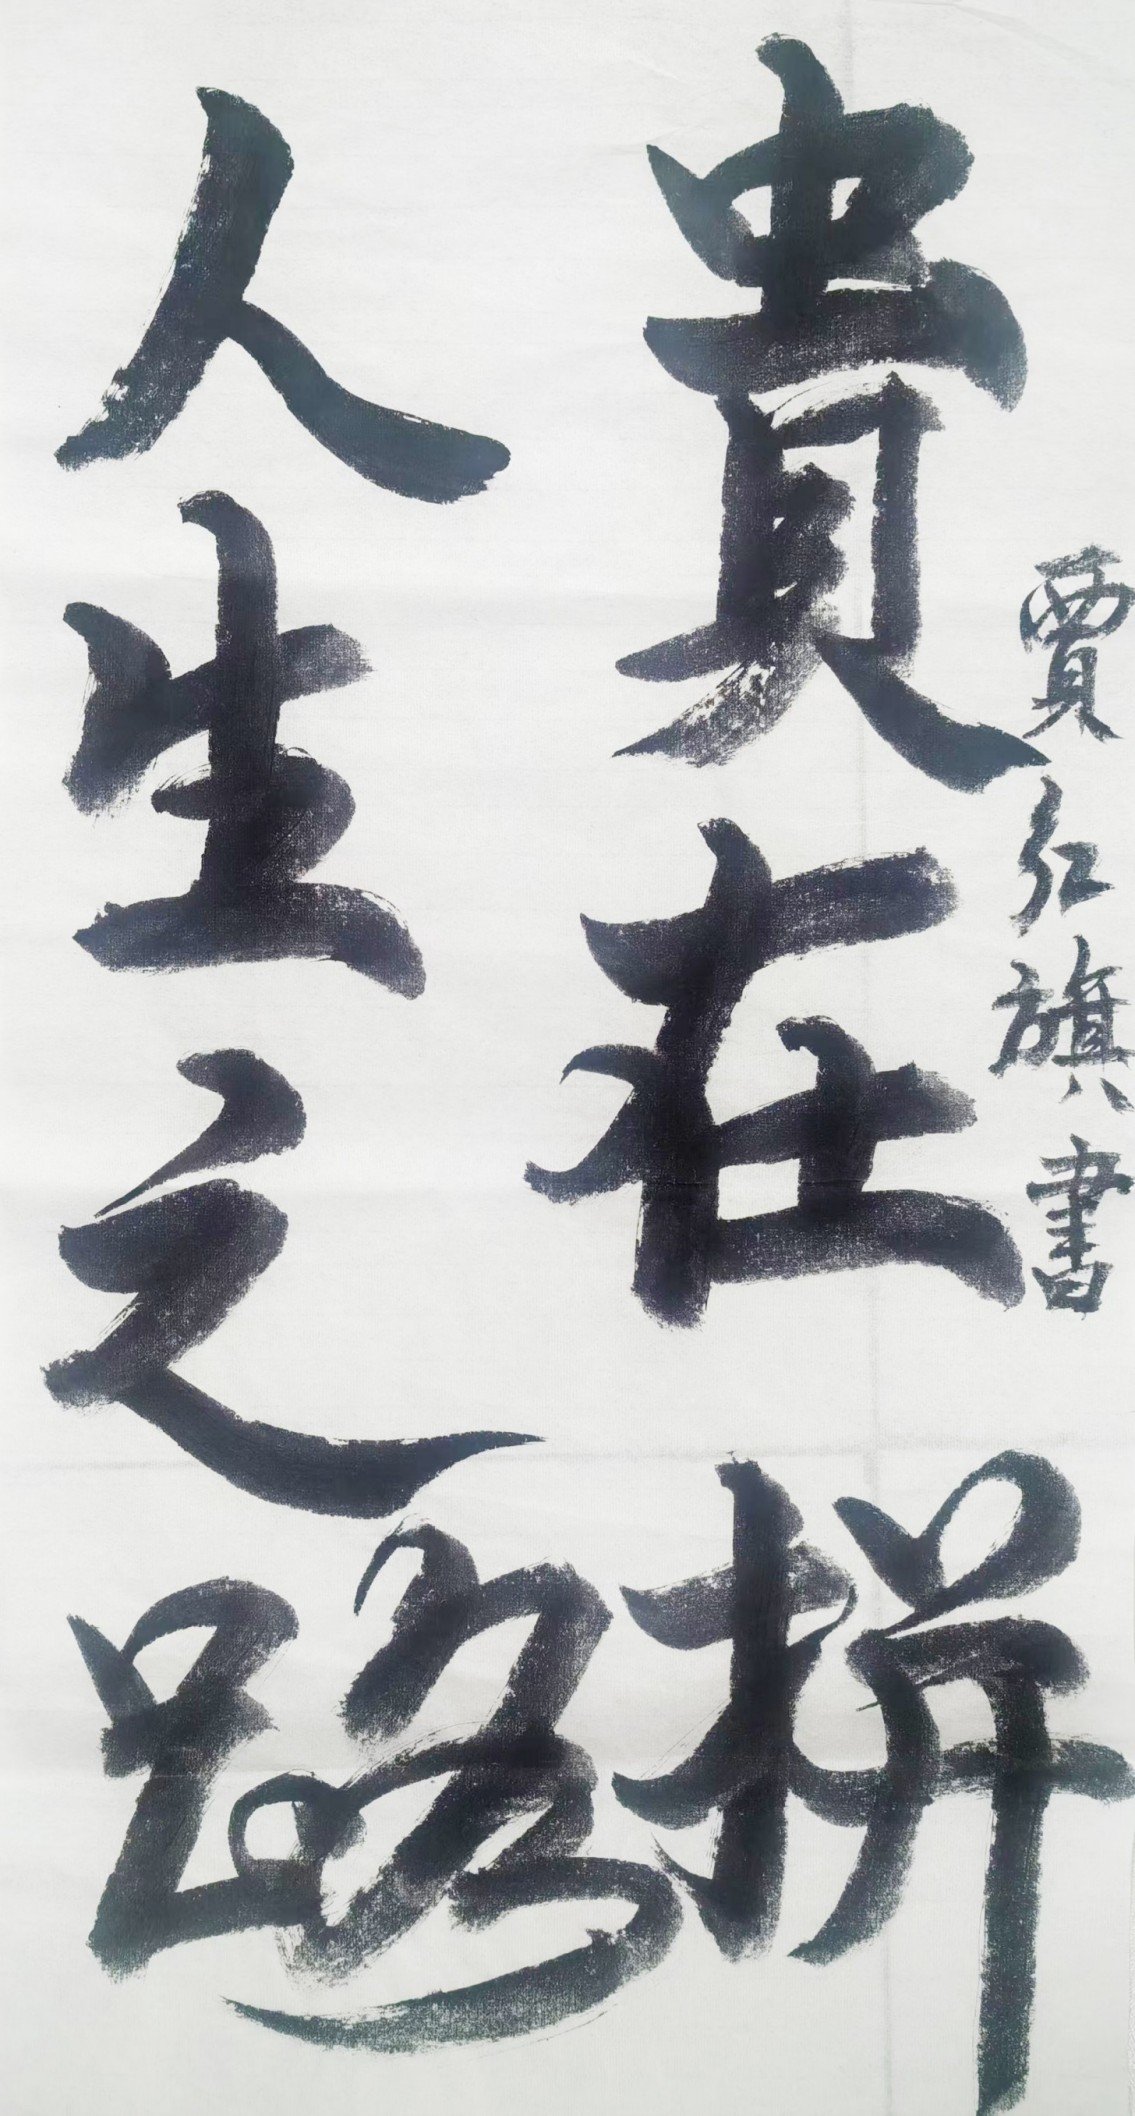 人生之路
貴在拼
賈红旗書